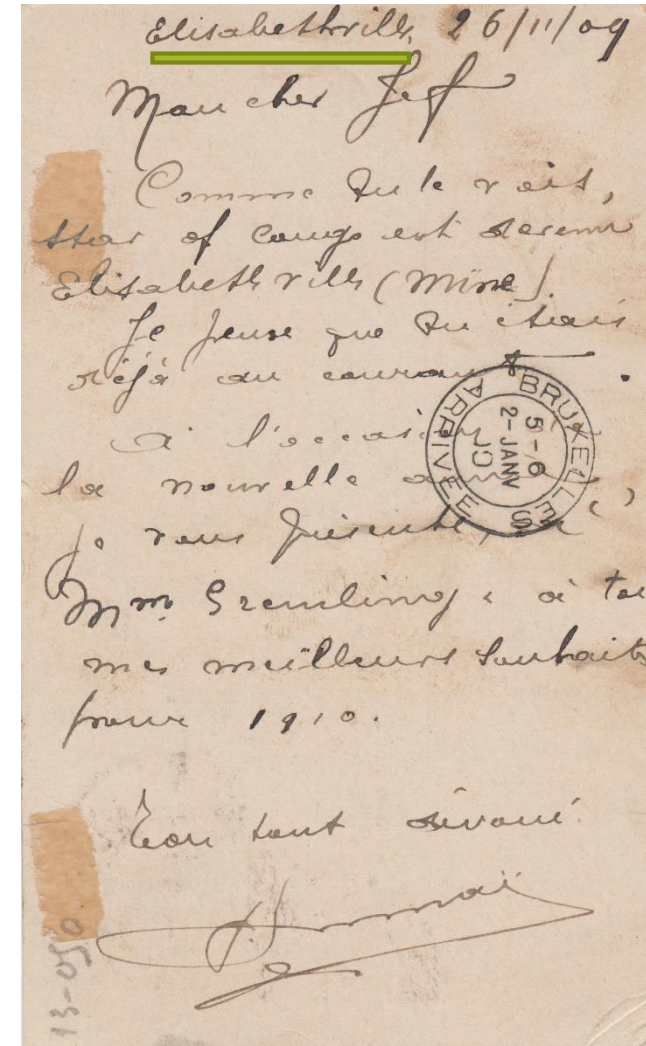 Elisabethville, 26/11/09
Mon cher Jef
Comme tu le vois,
Star of Congo est devenu
Elisabethville (Mine)
Je pense que tu étais
déjà au courant.
A l'occasion
la nouvelle
je vous présente, à
Mme Gremling & à toi
mes meilleurs souhaits
pour 1910.
Ton tout dévoué
BRUXELLES
5-6
2-JANV
10
ARRIVEE
13-090